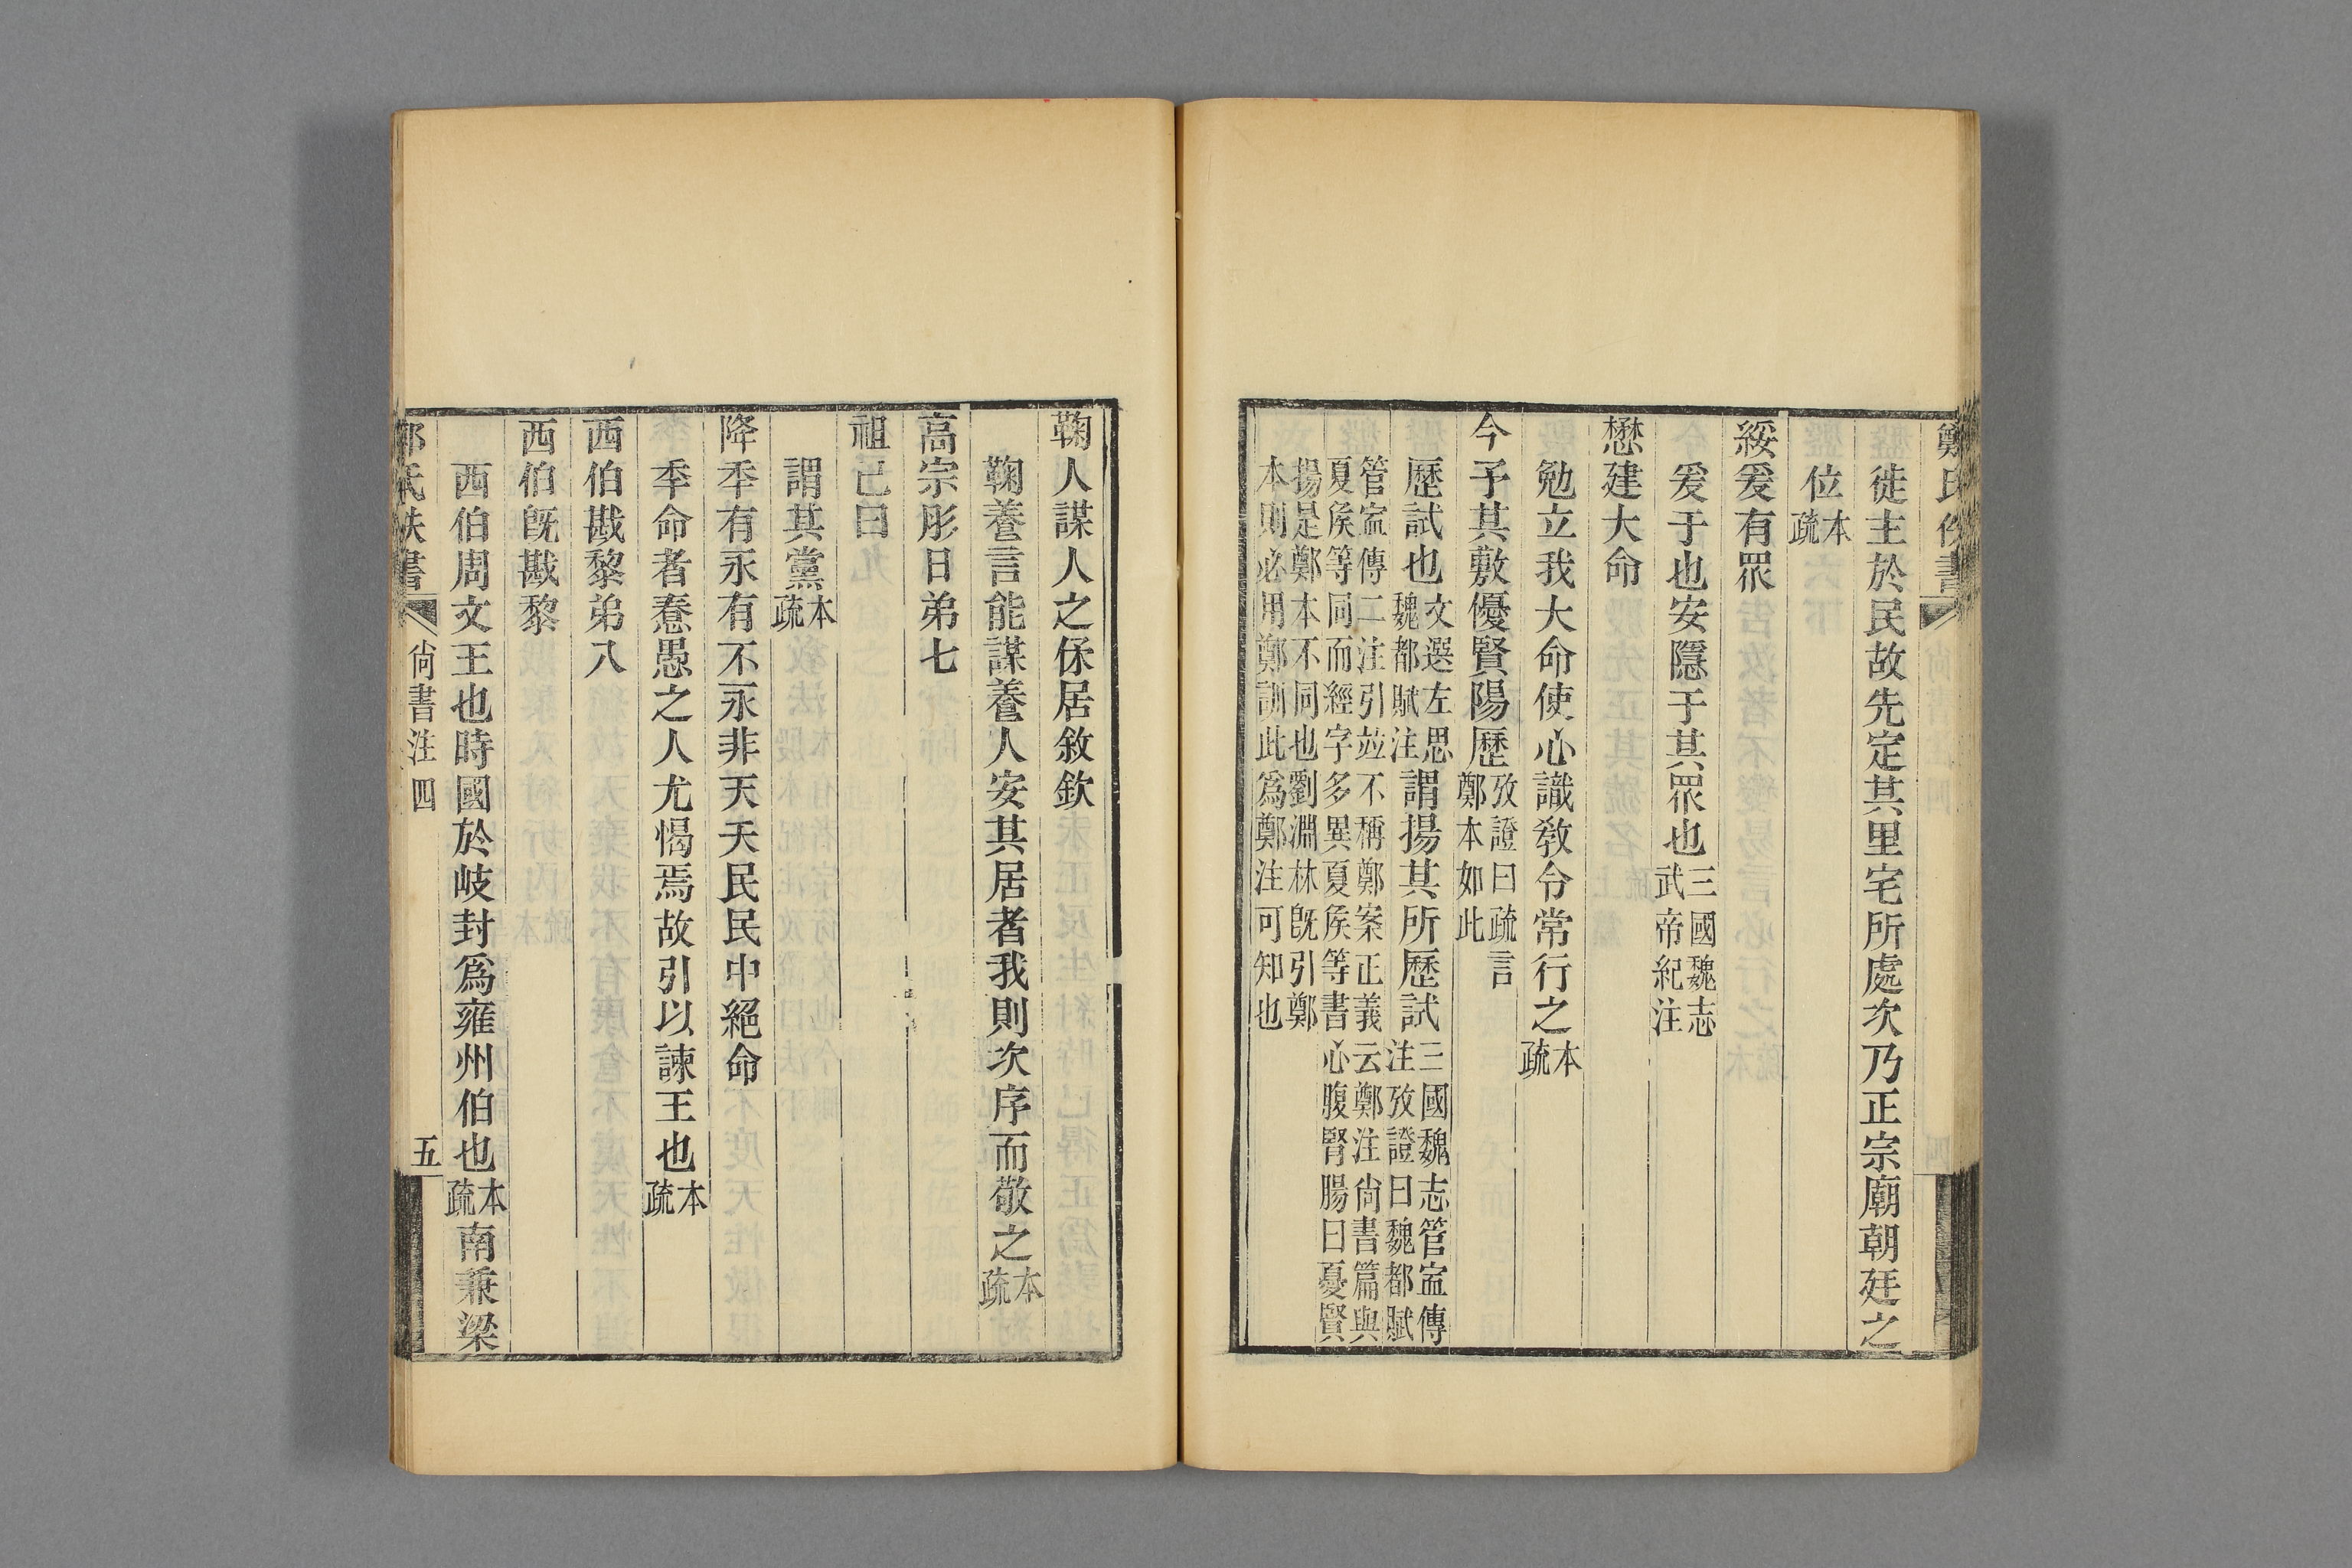 鄭氏佚書
徙主於民故先定其里宅所處次乃正宗廟朝廷之
位本疏
綏爰有眾
爰于也安隱于其眾也三國魏志武帝紀注
懋建大命
勉立我大命使心識教令常行之本疏
今予其敷優賢陽歷攷證曰疏言鄭本如此
歷試也文選左思魏都賦注謂揚其所歷試三國魏志管寍傳注攷證曰魏都賦
管寍傳二注引竝不稱鄭案正義云鄭注尙書篇與
夏矦等同而經字多異夏矦等書心腹腎腸曰憂賢
揚是鄭本不同也劉淵林旣引鄭
本則必用鄭訓此爲鄭注可知也
鞠人謀人之保居敘欽
鞠養言能謀養人安其居者我則次序而敬之本疏
高宗肜日弟七
祖己曰
謂其黨本疏
降秊有永有不永非天夭民民中絕命
秊命者惷愚之人尤愒焉故引以諫王也本疏
西伯戡黎弟八
西伯旣戡黎
西伯周文王也時國於岐封爲雍州伯也本疏南兼梁
鄭氏佚書 尙書注四 五